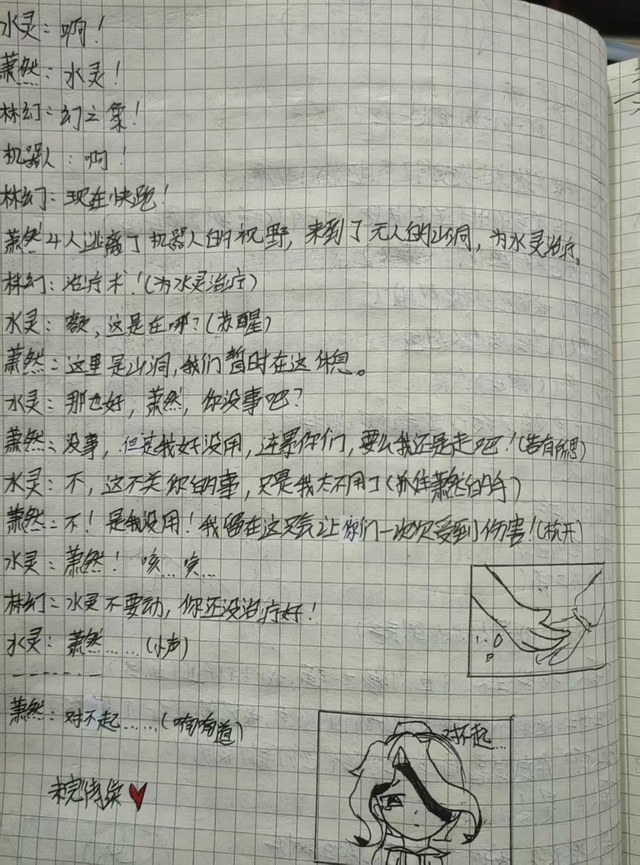 水灵：啊！
萧然：水灵！
林幻：幻之箭！
机器人：啊！
林幻：现在快跑！
萧然4人逃离了机器人的视野，来到了无人的山洞，为水灵治疗。
林幻：治疗术！(为水灵治疗)
水灵：额，这是在哪？(苏醒)
萧然：这里是山洞，我们暂时在这休息。
水灵：那也好，萧然，你没事吧？
萧然：没事，但是我好没用，连累你们，要么我还是走吧！(若有所思)
水灵：不，这不关你的事，只是我太不用了(抓住萧然的手)
萧然：不！是我没用！我留在这只会让你们一次次受到伤害！(松开)
水灵：萧然！咳…咳…
林幻：水灵不要动，你还没治疗好！
水灵：萧然……(小声)
萧然：对不起……(喃喃道)
对不起…
未完待续❤